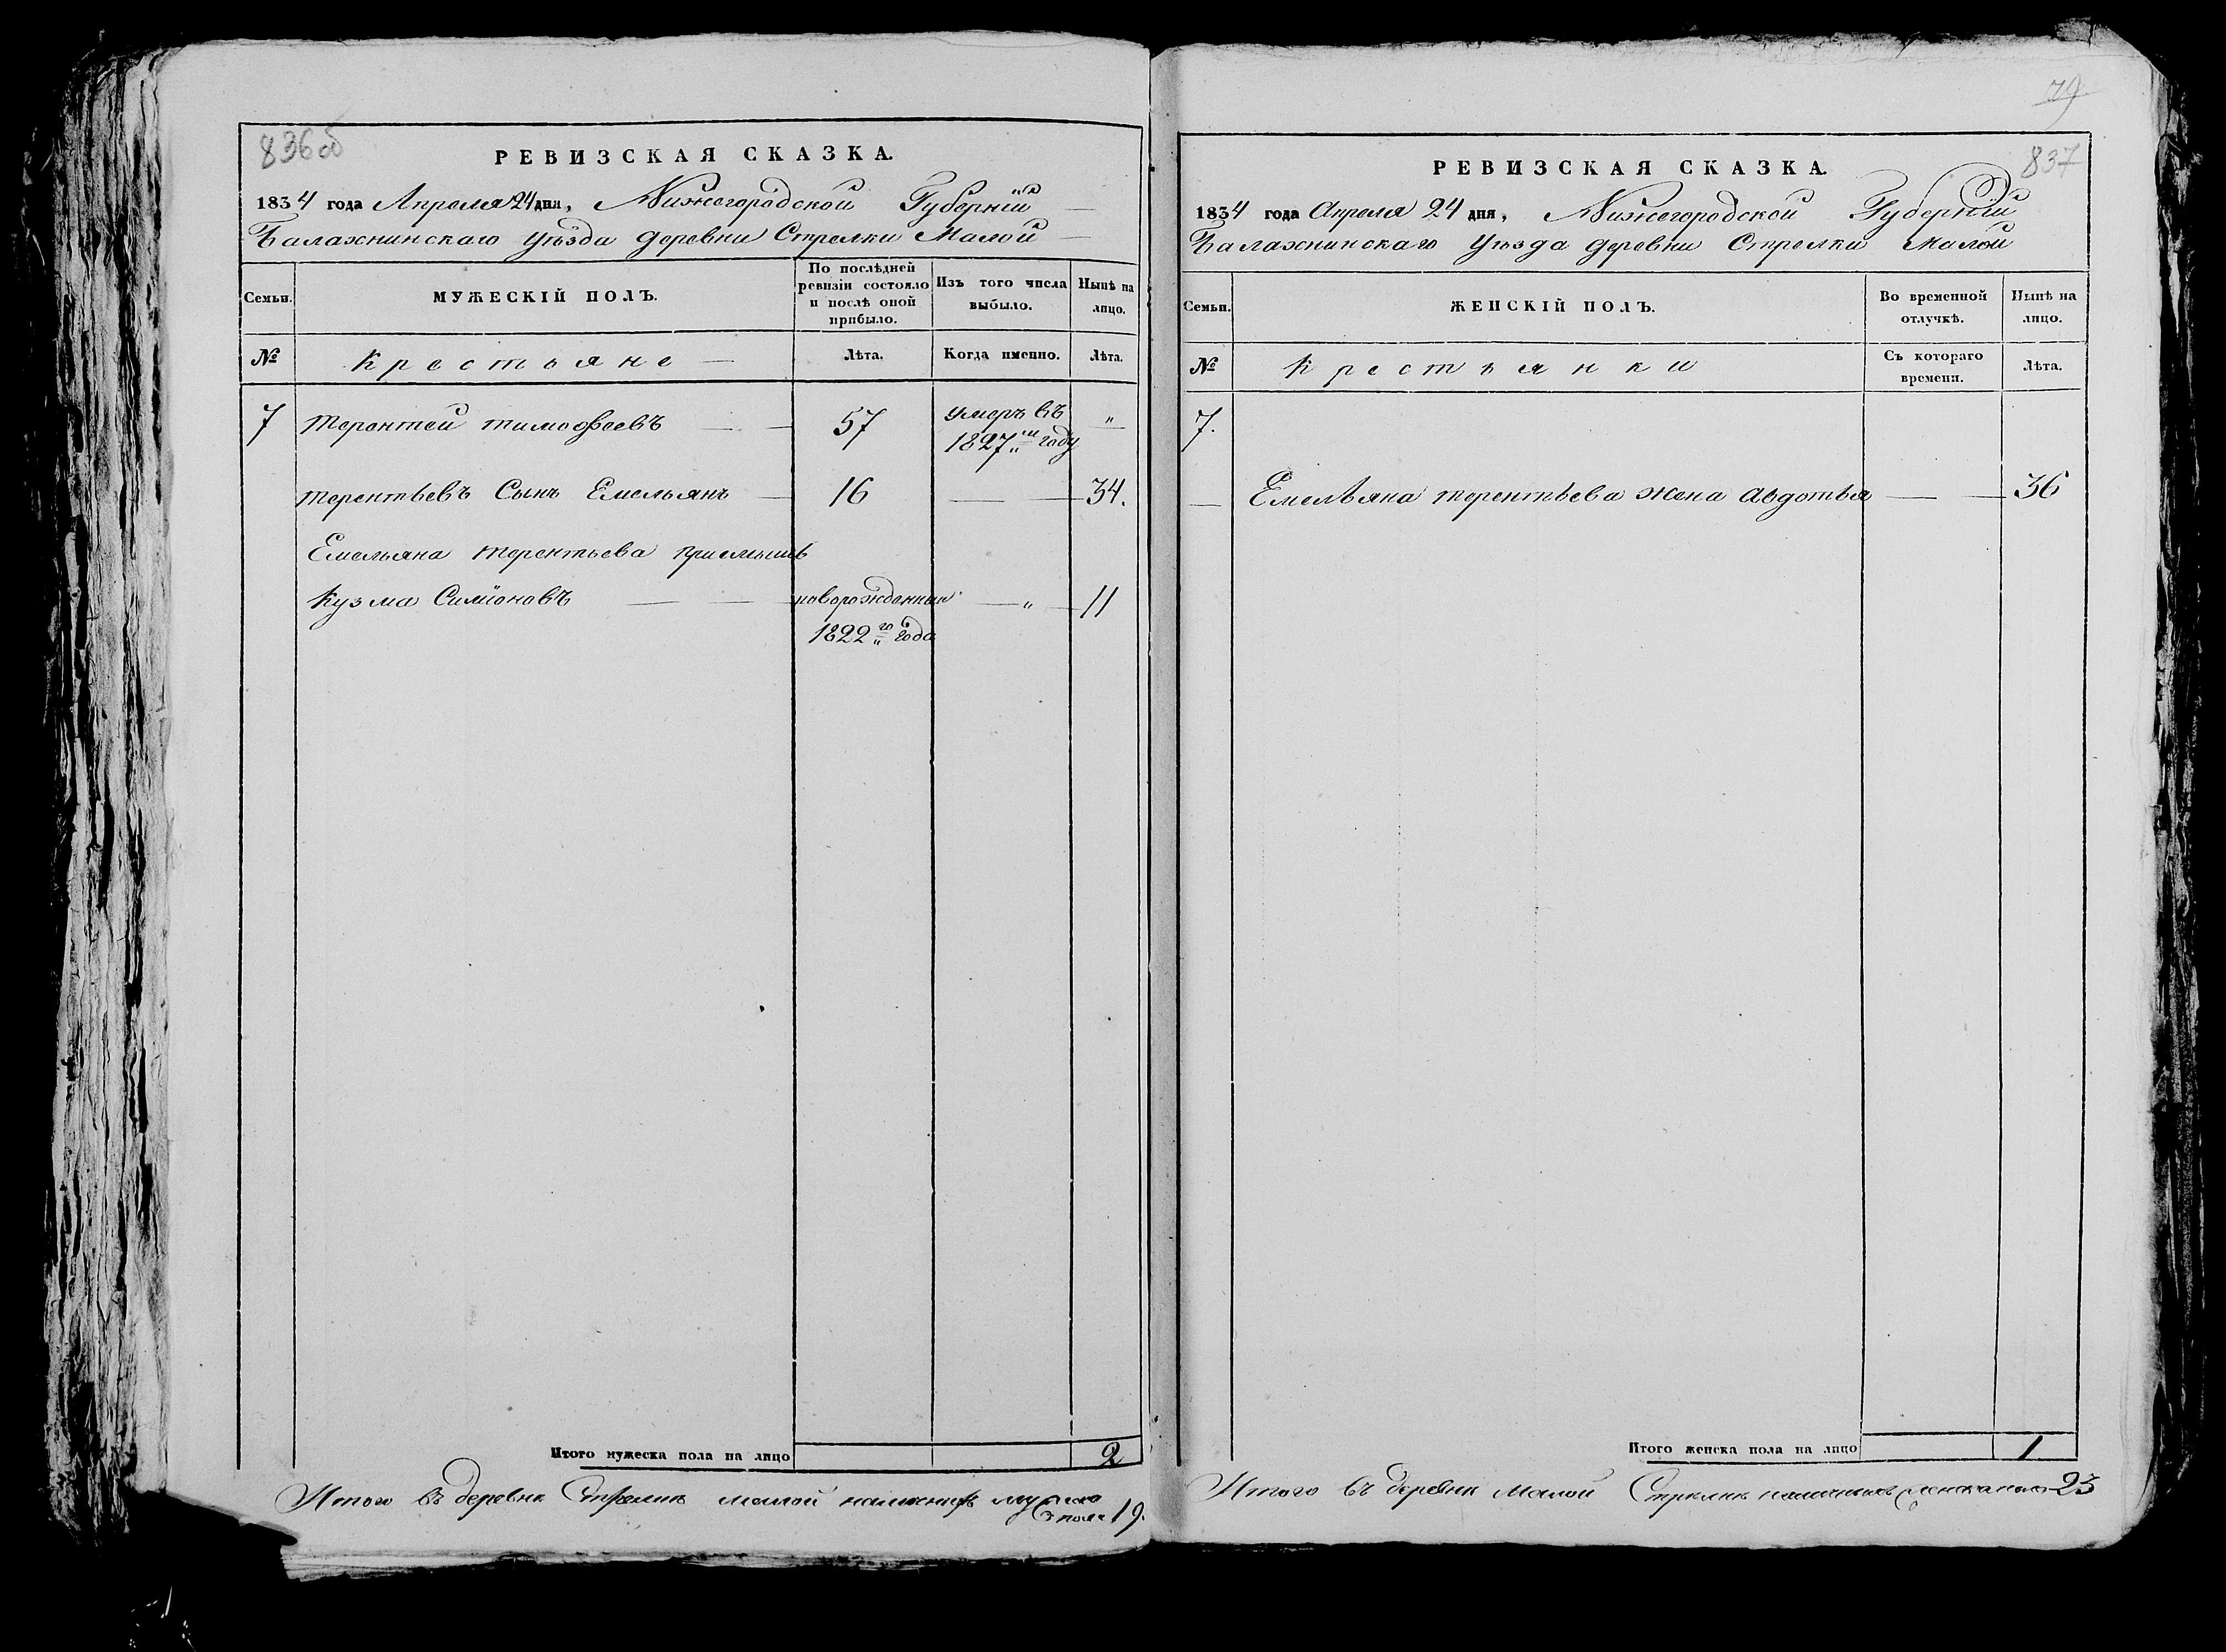 836об
РЕВИЗСКАЯ СКАЗКА.
1834 года Апреля 24 дня, Нижегородской Губерніи
Балахнинскаго уѣзда деревни Стрелки Малой
Семьи.
МУЖЕСКІЙ ПОЛЪ.
По послѣдней ревизіи состояло и послѣ оной прибыло.
Изъ того числа выбыло.
Нынѣ на лицо.
№
Крестьяне
Лѣта.
Когда именно.
Лѣта.
7 Терентей тимофеевъ 57 умеръ въ 1827м году "
терентьевъ Сынъ Емельянъ 16 34.
Емельяна терентьева приемышъ
Кузма Симіоновъ новорожденный " 11
1822го года
Итого мужеска пола на лицо 2
Итого въ деревне Стрелке малой наличныхъ мужеска пола 19.
79
837
РЕВИЗСКАЯ СКАЗКА.
1834 года Апреля 24 дня, Нижегородской Губерніи
Балахнинскаго уѣзда деревни Стрелки Малой
Семьи.
ЖЕНСКІЙ ПОЛЪ.
Во временной отлучкѣ.
Нынѣ на лицо.
№
Крестьянки
Съ котораго времени.
Лѣта.
7.
Емельяна терентьева жена авдотья 36
Итого женска пола на лицо 1
Итого въ деревни Малой Стрелке наличныхъ женска пола 23